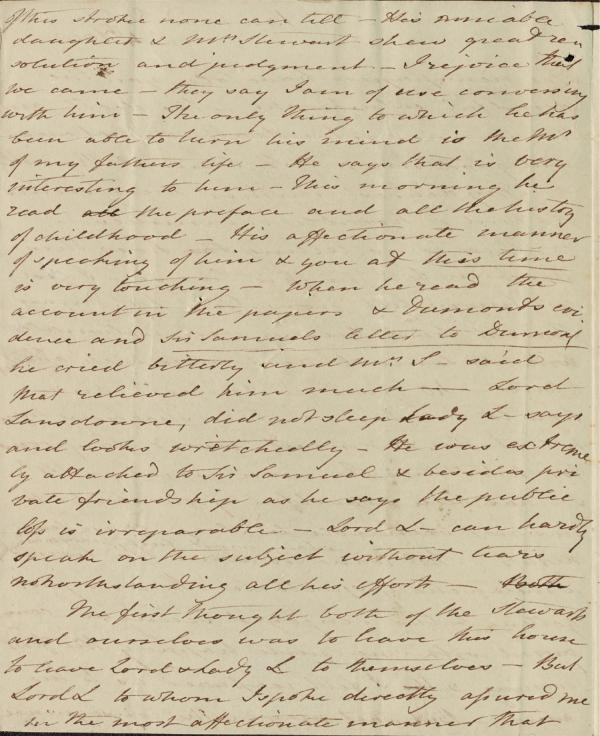 of this stroke none can tell – His amiable
daughter & Mrs Stewart shew great re
solution and judgment – I rejoice that
we came – they say I am of use conversing
with him – The only thing to which he has
been able to turn his mind is the Ms
of my fathers life – He says that is very
interesting to him – This morning he
read all the preface and all the history
of childhood – His affectionate manner
of speaking of him & you at this time
is very touching – When he read the
account in the papers & Dumonts evi
dence and Sir Samuels letter to Dumont
he cried bitterly and Mrs S– said
that relieved him much — Lord
Lansdowne, did not sleep Lady L– says
and looks wretchedly – He was extreme
ly attached to Sir Samuel & besides pri
vate friendship as he says the public
loss is irreparable – Lord L– can hardly
speak on the subject without tears
notwithstanding all his efforts – Both
The first thought both of the Stewarts
and ourselves was to leave this house
to leave Lord & Lady L to themselves – But
Lord L to whom I spoke directly assured me
in the most affectionate manner that